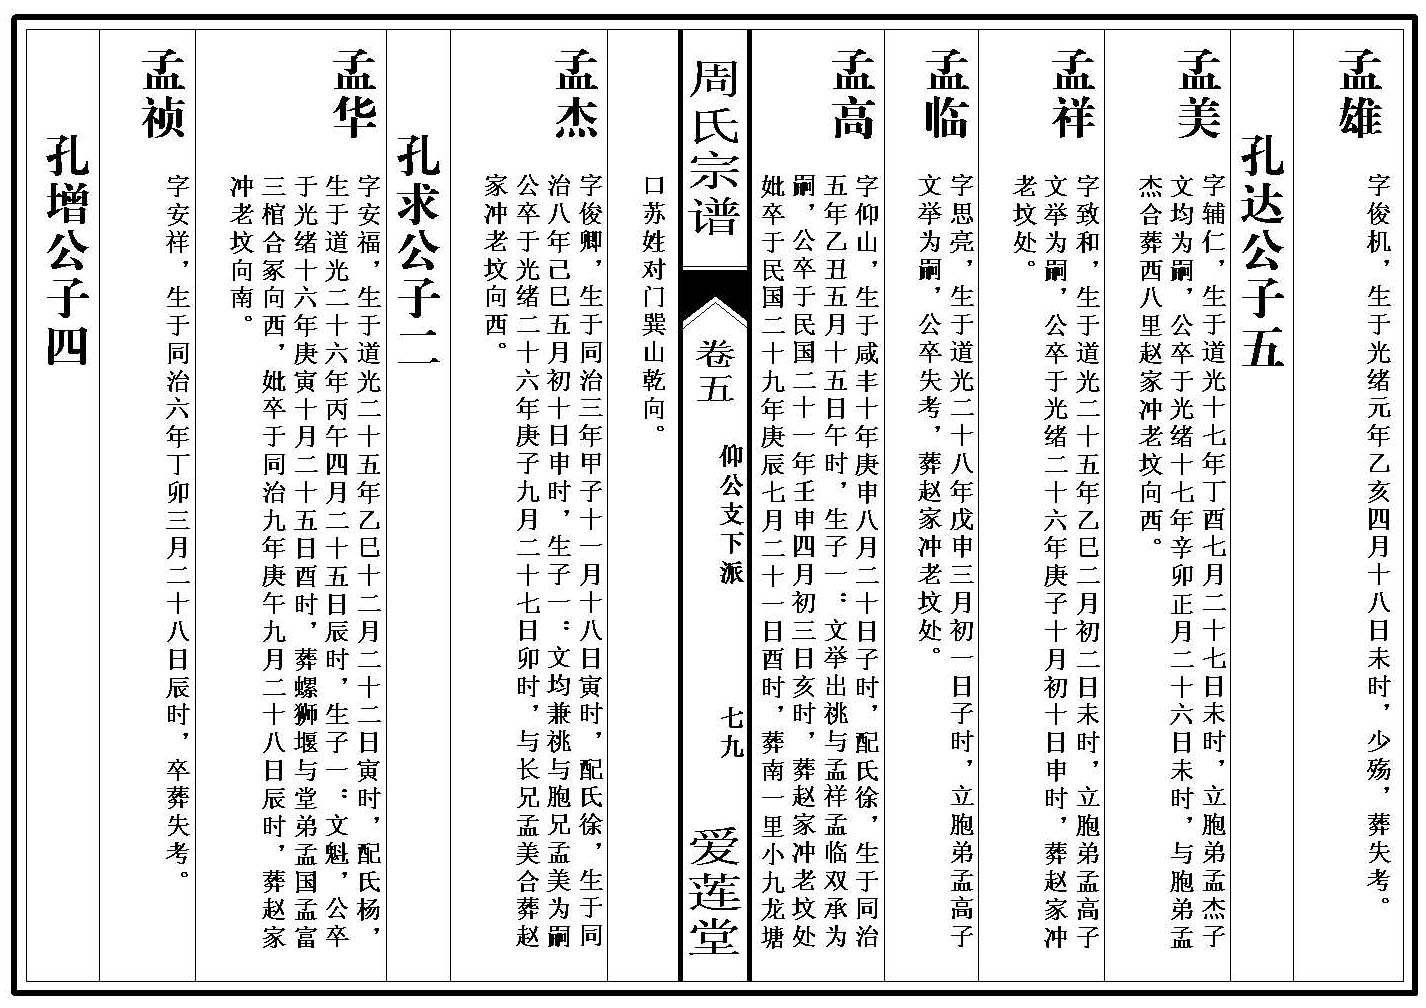 孟雄
字俊机，生于光绪元年乙亥四月十八日未时，少殇，葬失考。
孔达公子五
孟美
字辅仁，生于道光十七年丁酉七月二十七日未时，立胞弟孟杰子
文均为嗣，公卒于光绪十七年辛卯正月二十六日未时，与胞弟孟
杰合葬西八里赵家冲老坟向西。
孟祥
字致和，生于道光二十五年乙巳二月初二日未时，立胞弟孟高子
文举为嗣，公卒于光绪二十六年庚子十月初十日申时，葬赵家冲
老坟处。
孟临
字思亮，生于道光二十八年戊申三月初一日子时，立胞弟孟高子
文举为嗣，公卒失考，葬赵家冲老坟处。
孟高
字仰山，生于咸丰十年庚申八月二十日子时，配氏徐，生于同治
五年乙丑五月十五日午时，生子一：文举出祧与孟祥孟临双承为
嗣，公卒于民国二十一年壬申四月初三日亥时，葬赵家冲老坟处
妣卒于民国二十九年庚辰七月二十一日酉时，葬南一里小九龙塘
周氏宗谱
卷五
仰公支下派
七九
爱莲堂
口苏姓对门巽山乾向。
孟杰
字俊卿，生于同治三年甲子十一月十八日寅时，配氏徐，生于同
治八年己巳五月初十日申时，生子一：文均兼祧与胞兄孟美为嗣
公卒于光绪二十六年庚子九月二十七日卯时，与长兄孟美合葬赵
家冲老坟向西。
孔求公子二
孟华
字安福，生于道光二十五年乙巳十二月二十二日寅时，配氏杨，
生于道光二十六年丙午四月二十五日辰时，生子一：文魁，公卒
于光绪十六年庚寅十月二十五日酉时，葬螺狮堰与堂弟孟国孟富
三棺合冢向西，妣卒于同治九年庚午九月二十八日辰时，葬赵家
冲老坟向南。
孟祯
字安祥，生于同治六年丁卯三月二十八日辰时，卒葬失考。
孔增公子四